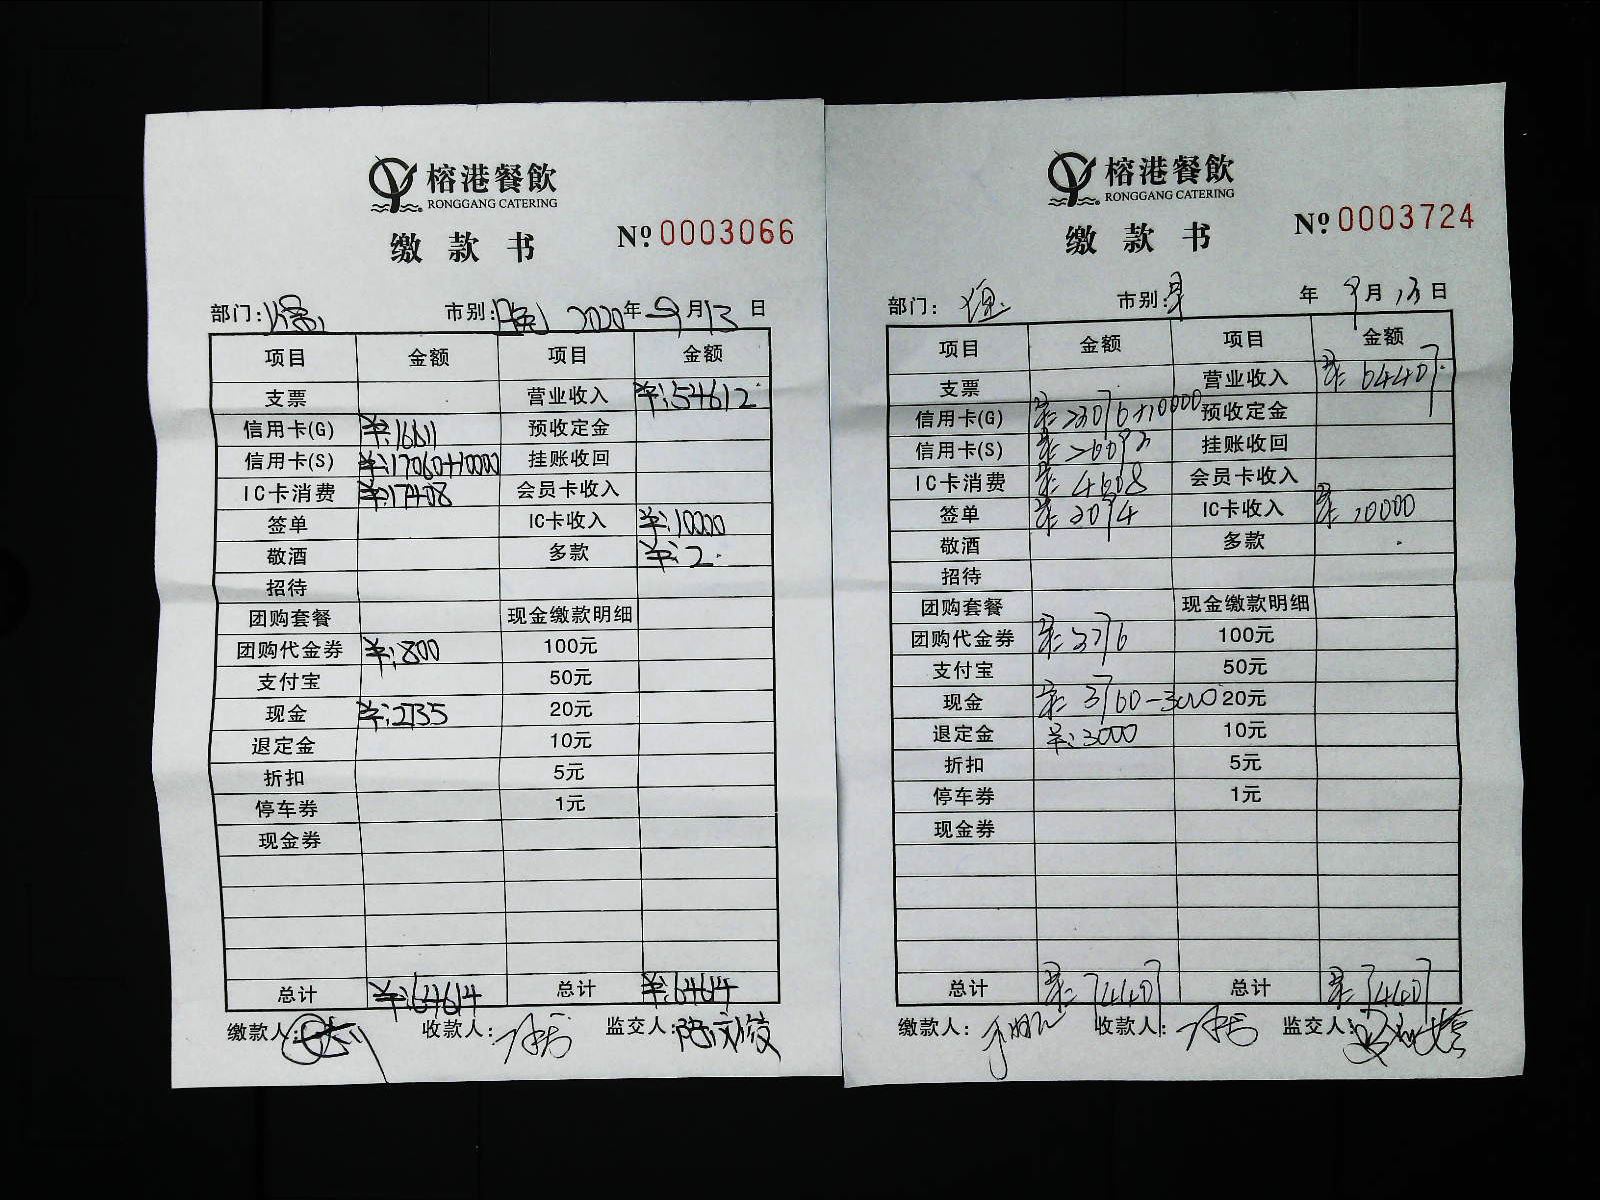 榕港餐飲
RONGGANG CATERING
缴款书
№ 0003066
部门: 市别: 2020年 9月13日
项目 金额 项目 金额
支票 营业收入 ¥:54612
信用卡(G) ¥:16611 预收定金
信用卡(S) ¥:17060+10000 挂账收回
IC卡消费 ¥:17408 会员卡收入
签单 IC卡收入 ¥:10000
敬酒 多款 ¥:2
招待
团购套餐 现金缴款明细
团购代金券 ¥:800 100元
支付宝 50元
现金 ¥:2735 20元
退定金 10元
折扣 5元
停车券 1元
现金券
总计 ¥:64614 总计 ¥:64614
缴款人: 收款人: 监交人:
榕港餐飲
RONGGANG CATERING
缴款书
№ 0003724
部门: 市别: 年 9月13日
项目 金额 项目 金额
支票 营业收入 ¥:64407
信用卡(G) ¥:23076+10000 预收定金
信用卡(S) ¥:26093 挂账收回
IC卡消费 ¥:4608 会员卡收入
签单 ¥:3094 IC卡收入 ¥:10000
敬酒 多款
招待
团购套餐 现金缴款明细
团购代金券 ¥:3776 100元
支付宝 50元
现金 ¥:3760-3000 20元
退定金 ¥:3000 10元
折扣 5元
停车券 1元
现金券
总计 ¥:74407 总计 ¥:74407
缴款人: 收款人: 监交人: